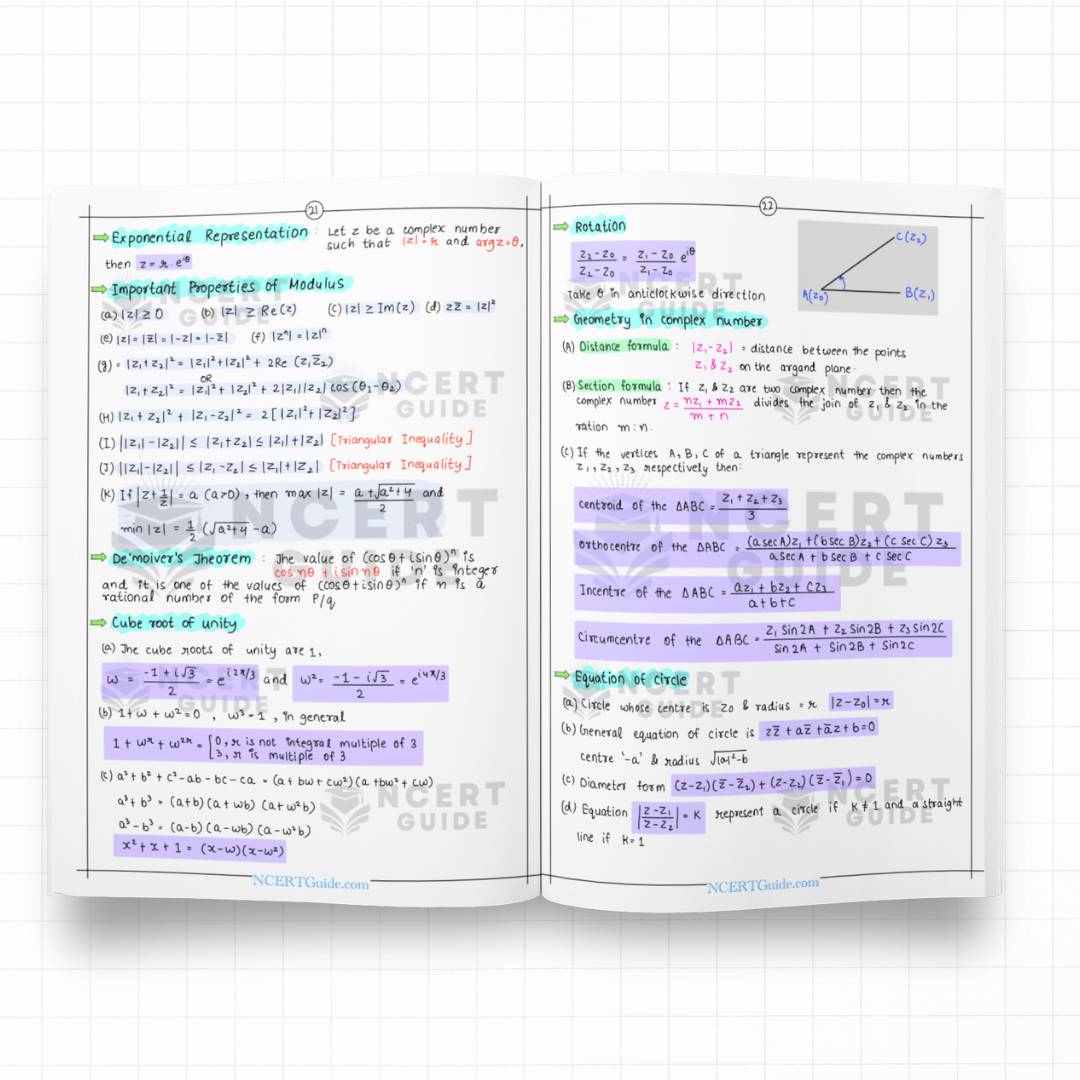 21
⇒ Exponential Representation : Let z be a complex number
such that |z| = r and arg z = θ,
then z = r·e^iθ
⇒ Important Properties of Modulus
(a) |z| ≥ 0 (b) |z| ≥ Re(z) (c) |z| ≥ Im(z) (d) zz̄ = |z|²
(e) |z| = |z̄| = |-z| = |-z̄| (f) |zⁿ| = |z|ⁿ
(g) = |z₁+z₂|² = |z₁|² + |z₂|² + 2Re (z₁z̄₂)
OR
|z₁+z₂|² = |z₁|² + |z₂|² + 2|z₁||z₂| cos (θ₁-θ₂)
(H) |z₁+z₂|² + |z₁-z₂|² = 2[|z₁|²+|z₂|²]
(I) ||z₁|-|z₂|| ≤ |z₁+z₂| ≤ |z₁|+|z₂| [Triangular Inequality]
(J) ||z₁|-|z₂|| ≤ |z₁-z₂| ≤ |z₁|+|z₂| [Triangular Inequality]
(K) If |z+1/z| = a (a>0), then max |z| = (a+√(a²+4))/2 and
min |z| = 1/2 (√(a²+4) - a)
⇒ De'moiver's Theorem : The value of (cosθ+isinθ)ⁿ is
cos nθ + i sin nθ if 'n' is integer
and it is one of the values of (cosθ+isinθ)ⁿ if n is a
rational number of the form P/q
⇒ Cube root of unity
(a) The cube roots of unity are 1,
ω = (-1+i√3)/2 = e^i2π/3 and ω² = (-1-i√3)/2 = e^i4π/3
(b) 1+ω+ω²=0 , ω³=1 , in general
1+ωʳ+ω²ʳ = [0, r is not integral multiple of 3
3, r is multiple of 3
(c) a²+b²+c²-ab-bc-ca = (a+bω+cω²)(a+bω²+cω)
a³+b³ = (a+b)(a+ωb)(a+ω²b)
a³-b³ = (a-b)(a-ωb)(a-ω²b)
x²+x+1 = (x-ω)(x-ω²)
NCERTGuide.com
22
⇒ Rotation
(z₂-z₀)/(z₂-z₀) = (z₁-z₀)/(z₁-z₀) e^iθ
C(z₂)
A(z₀)
B(z₁)
Take θ in anticlockwise direction
⇒ Geometry in complex number
(A) Distance formula : |z₁-z₂| = distance between the points
z₁ & z₂ on the argand plane·
(B) Section formula : If z₁ & z₂ are two complex number then the
complex number z = (nz₁+mz₂)/(m+n) divides the join of z₁ & z₂ in the
ration m:n.
(c) If the vertices A, B, C of a triangle represent the complex numbers
z₁, z₂, z₃ respectively then:
centroid of the ΔABC = (z₁+z₂+z₃)/3
Orthocentre of the ΔABC = ((a secA)z₁+(b sec B)z₂+(c sec C)z₃)/(a secA + b sec B + c sec C)
Incentre of the ΔABC = (az₁+bz₂+cz₃)/(a+b+c)
Circumcentre of the ΔABC = (z₁ Sin 2A + z₂ Sin 2B + z₃ Sin 2C)/(Sin 2A + Sin 2B + Sin 2C)
⇒ Equation of circle
(a) Circle whose centre is z₀ & radius = r |z-z₀|=r
(b) General equation of circle is zz̄ + az̄ + āz + b = 0
centre '-a' & radius √(|a|²-b)
(c) Diameter form (z-z₁)(z̄-z̄₂)+(z-z₂)(z̄-z̄₁)=0
(d) Equation |(z-z₁)/(z-z₂)| = K represent a circle if K≠1 and a straight
line if K=1
NCERTGuide.com
NCERT
GUIDE